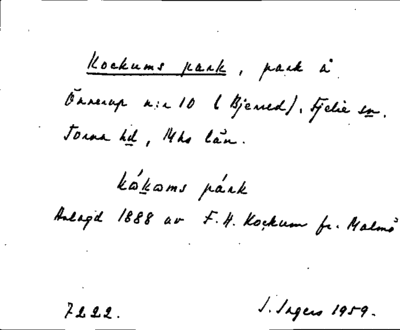 Kockums park, park å
Önnerup n:r 10 (Bjerred), Fjelie sn.
Torna hd, Mhs län.
kåkoms párk
Anlagd 1888 av F. H. Kockum fr. Malmö
7222. I. Ingers 1959.